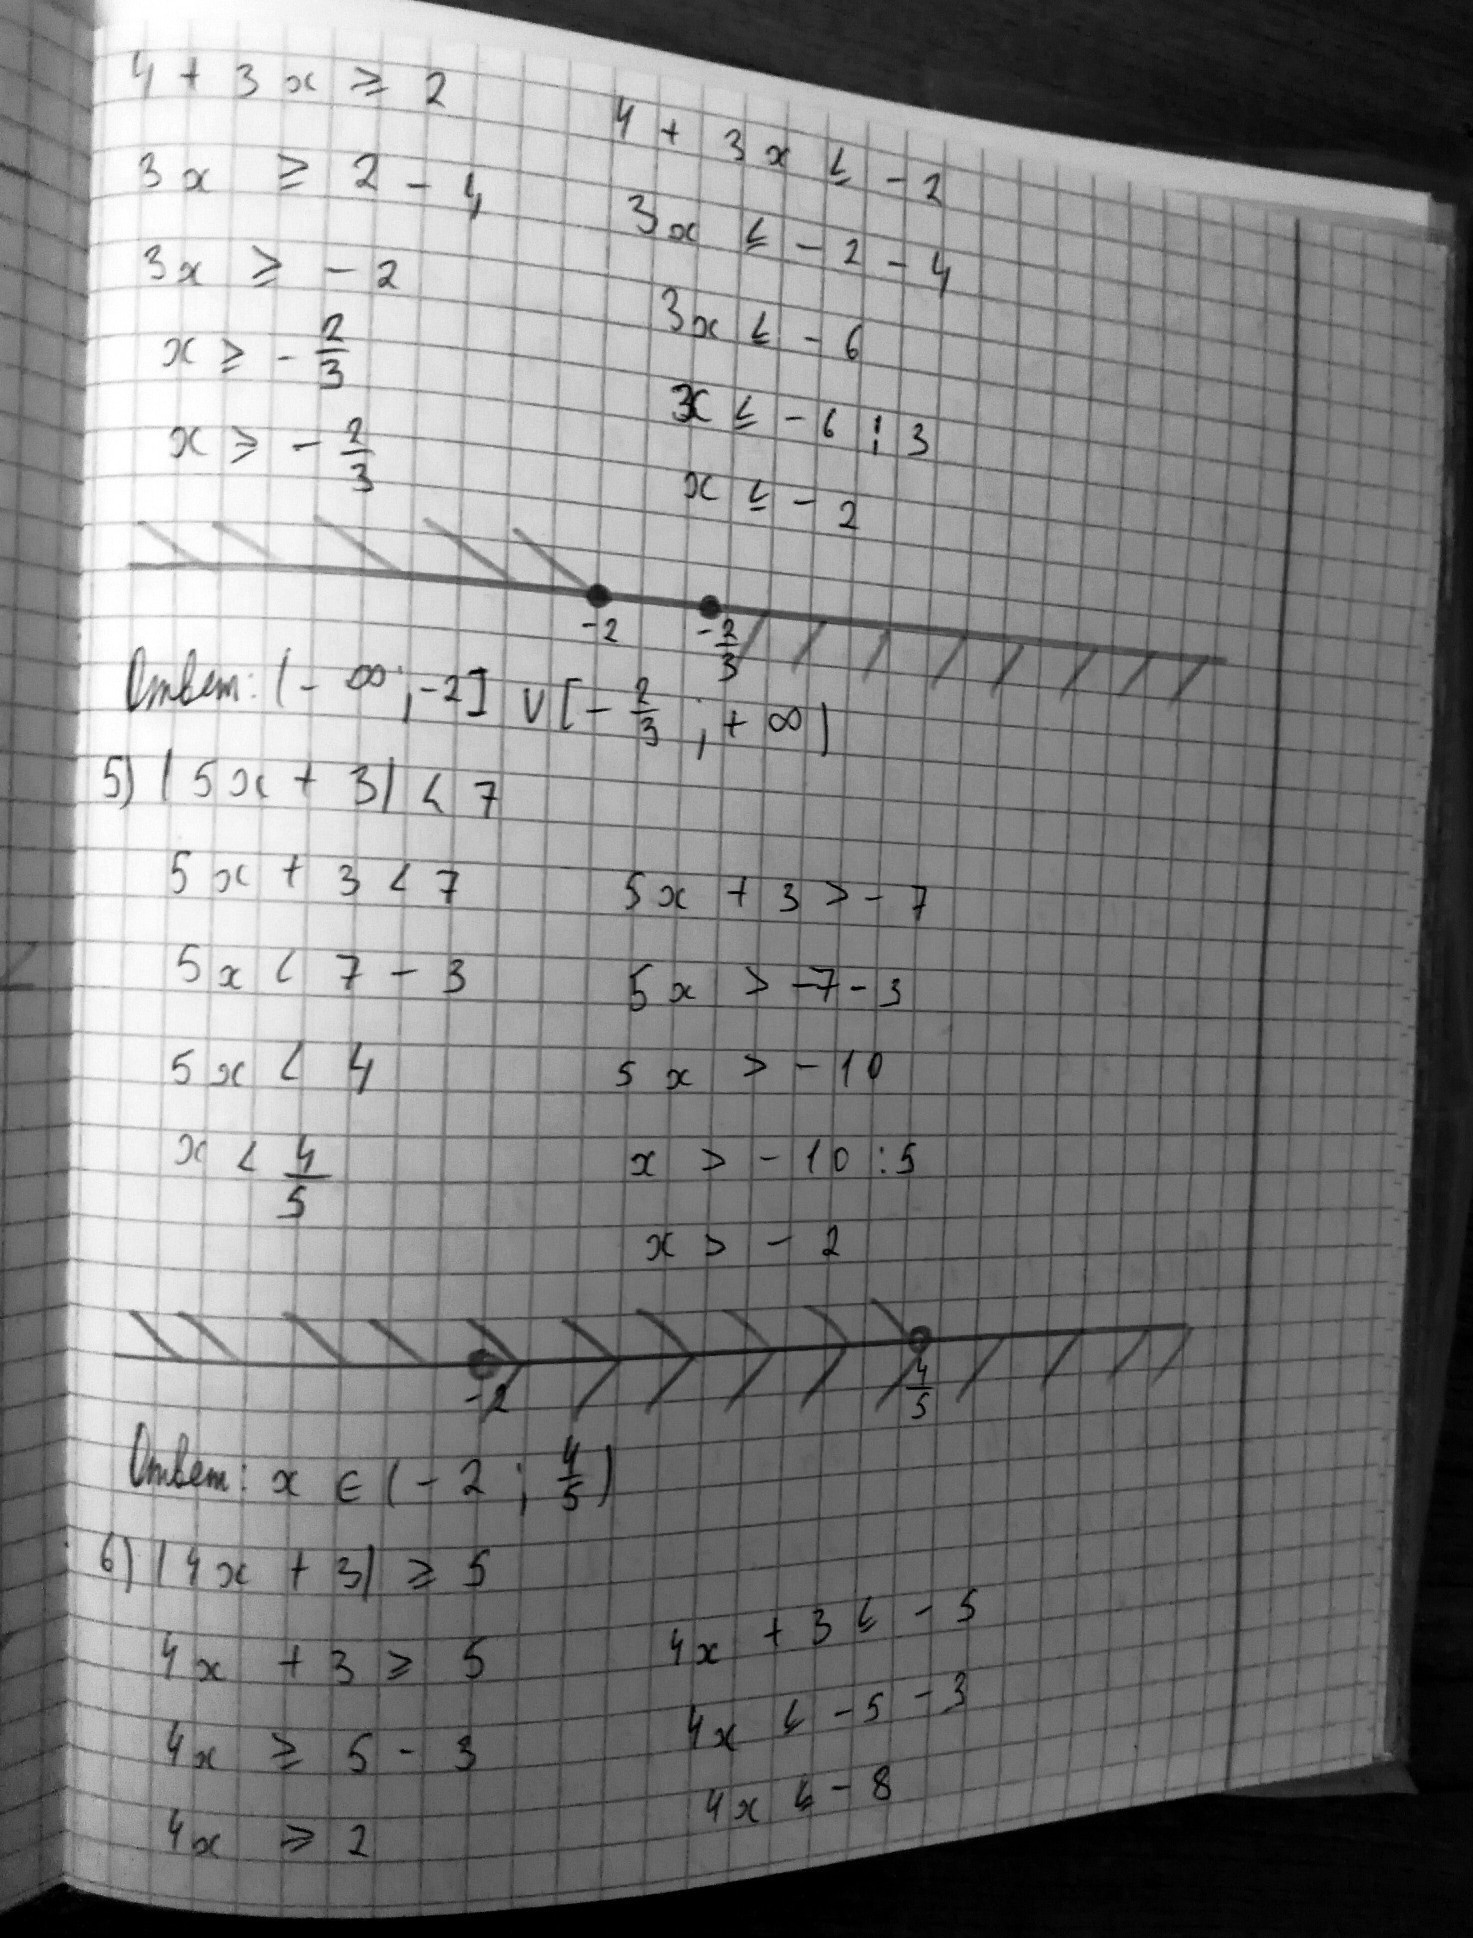 4 + 3x ≥ 2
3x ≥ 2 - 4
3x ≥ - 2
x ≥ - 2/3
x ≥ - 2/3
4 + 3x ≤ - 2
3x ≤ - 2 - 4
3x ≤ - 6
x ≤ - 6 : 3
x ≤ - 2
-2 -2/3
Ответ: (- ∞; -2] ∪ [- 2/3; + ∞)
5) |5x + 3| < 7
5x + 3 < 7
5x < 7 - 3
5x < 4
x < 4/5
5x + 3 > - 7
5x > -7 - 3
5x > - 10
x > - 10 : 5
x > - 2
-2 4/5
Ответ: x ∈ (- 2; 4/5)
6) |4x + 3| ≥ 5
4x + 3 ≥ 5
4x ≥ 5 - 3
4x ≥ 2
4x + 3 ≤ - 5
4x ≤ - 5 - 3
4x ≤ - 8